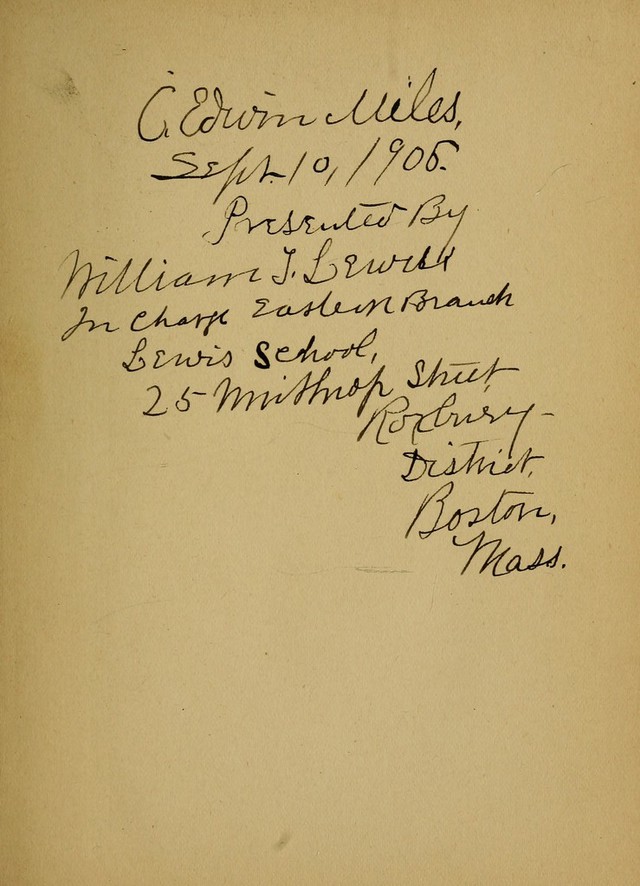 C. Edwin Miles,
Sept. 10, 1905.
Presented By
William J. Lewis
In Charge Eastern Branch
Lewis School,
25 Winthrop Street
Roxbury-
District,
Boston,
Mass.